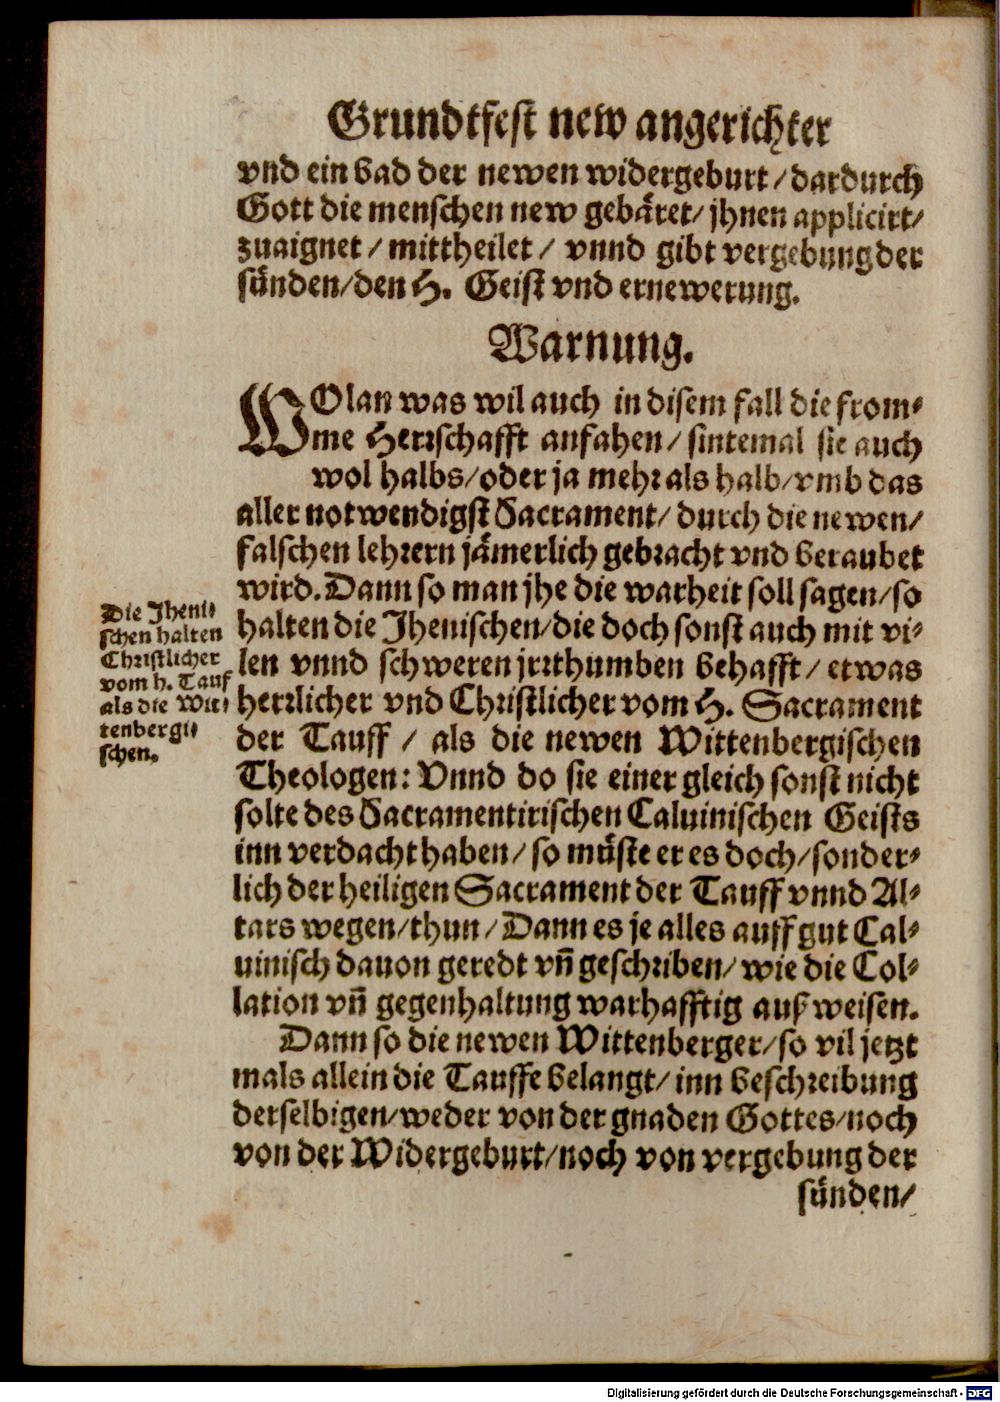 Grundtfest new angerichter
vnd ein bad der newen widergeburt/dardurch
Gott die menschen new gebäret/jhnen applicirt/
zuaignet/mittheilet/ vnnd gibt vergebung der
sünden/den H. Geist vnd ernewerung.
Warnung.
WOlan was wil auch in disem fall die from-
me Herrschafft anfahen/sintemal sie auch
wol halbs/oder ja mehr als halb/vmb das
aller notwendigst Sacrament/durch die newen/
falschen lehrern jämerlich gebracht vnd beraubet
wird. Dann so man jhe die warheit soll sagen/so
halten die Jhenischen/die doch sonst auch mit vi-
len vnnd schweren jrrthumben behafft/etwas
herrlicher vnd Christlicher vom H. Sacrament
der Tauff/als die newen Wittenbergischen
Theologen: Vnnd do sie einer gleich sonst nicht
solte des Sacramentirischen Caluinischen Geists
inn verdacht haben/so müste er es doch/sonder-
lich der heiligen Sacrament der Tauff vnnd Al-
tars wegen/thun/Dann es je alles auff gut Cal-
uinisch dauon geredt vñ geschriben/wie die Col-
lation vñ gegenhaltung warhafftig außweisen.
Dann so die newen Wittenberger/so vil jetzt
mals allein die Tauffe belangt/inn beschreibung
derselbigen/weder von der gnaden Gottes/noch
von der Widergeburt/noch von vergebung der
sünden/
Die Jheni-
schen halten
Christlicher
vom h. Tauf
als die Wit-
tenbergi-
schen.
Digitalisierung gefördert durch die Deutsche Forschungsgemeinschaft - DFG